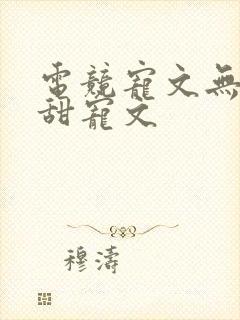 電競寵文無
甜寵文
穆濤